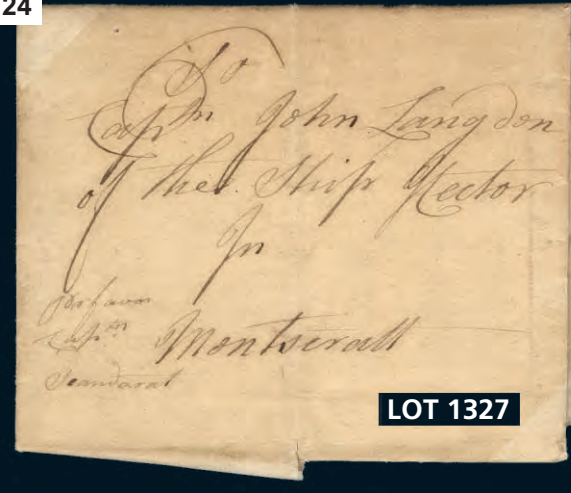 24
To
Capᵗⁿ John Langdon
of the Ship Hector
In
Montseratt
Per favor
Capᵗⁿ
LOT 1327